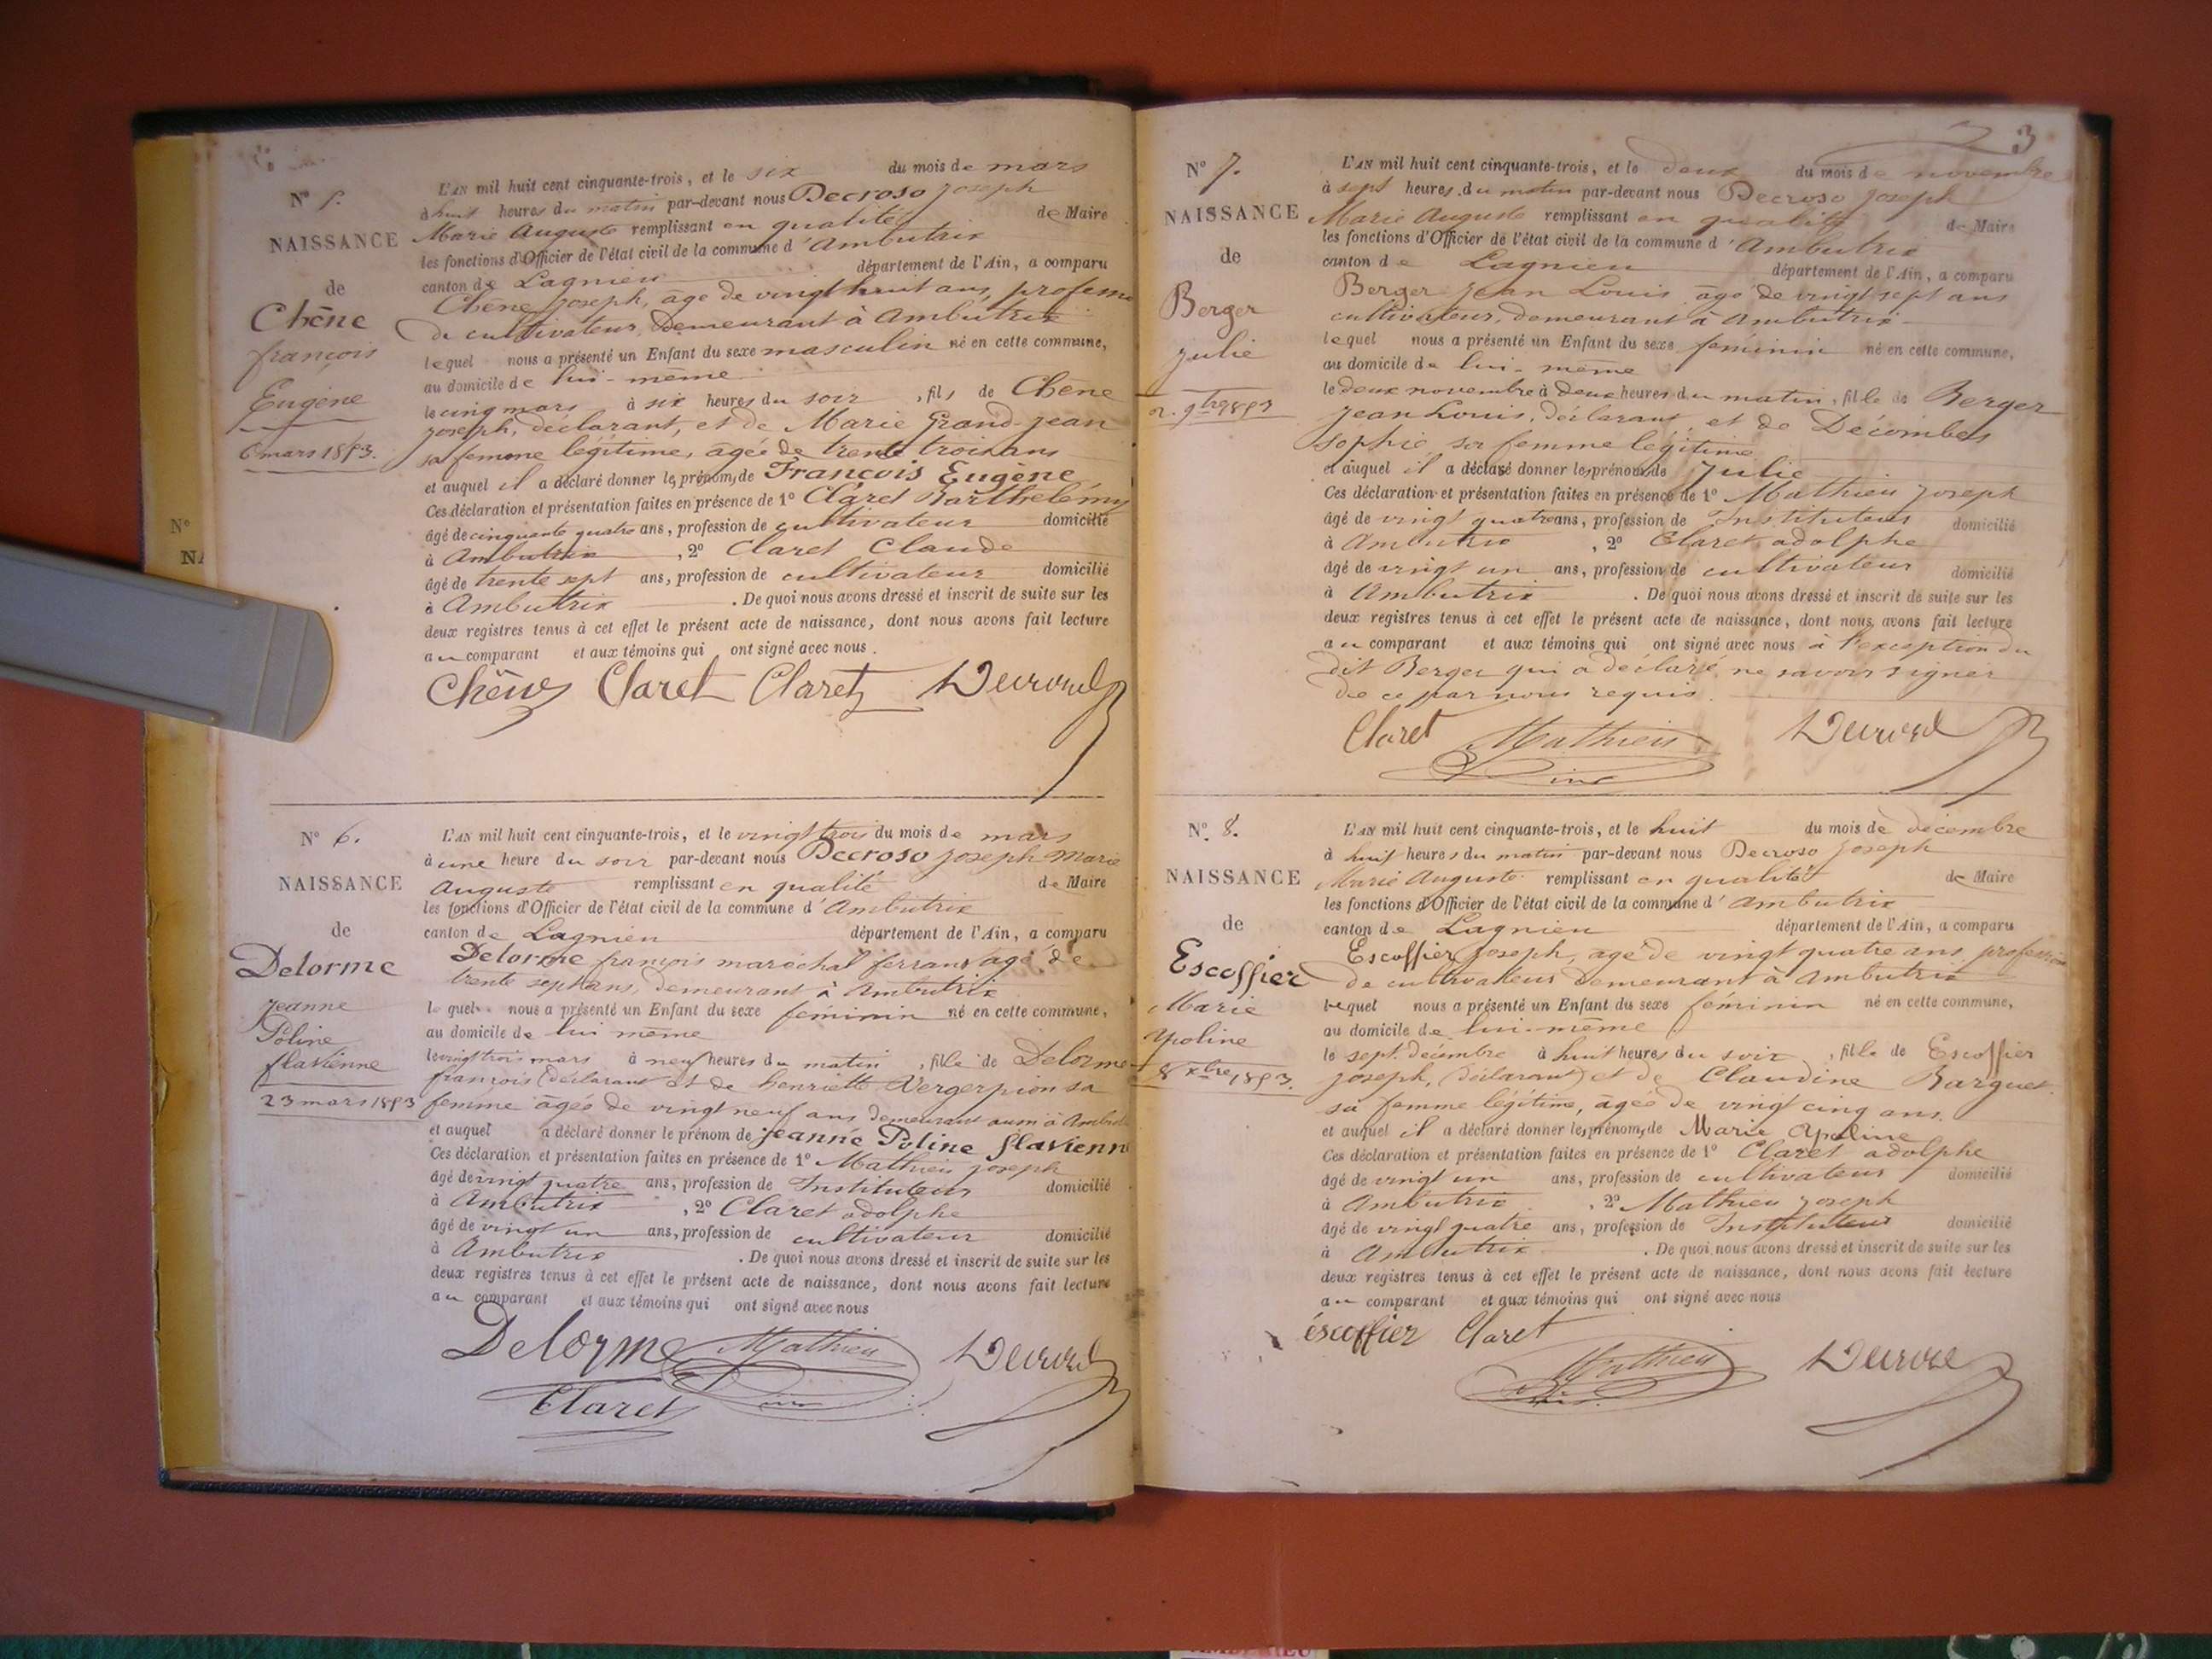 N° 5.
NAISSANCE
de
Chêne
françois
Eugène
6 mars 1853.
L'AN mil huit cent cinquante-trois, et le six du mois de mars
à huit heures du matin par-devant nous Decroso Joseph
Marie Auguste remplissant en qualité de Maire
les fonctions d'Officier de l'état civil de la commune d'Ambutrix
canton de Lagnieu département de l'Ain, a comparu
Chêne Joseph, âge de vingt huit ans, profession
de cultivateur, demeurant à Ambutrix
lequel nous a présenté un Enfant du sexe masculin né en cette commune,
au domicile de lui-même
le cinq mars à six heures du soir, fils de Chêne
Joseph, déclarant, et de Marie Grand-jean
sa femme légitime, agée de trente trois ans
et auquel il a déclaré donner les prénoms de François Eugène
Ces déclaration et présentation faites en présence de 1° Claret Barthelémy
âgé de cinquante quatre ans, profession de cultivateur domicilié
à Ambutrix, 2° Claret Claude
âgé de trente sept ans, profession de cultivateur domicilié
à Ambutrix. De quoi nous avons dressé et inscrit de suite sur les
deux registres tenus à cet effet le présent acte de naissance, dont nous avons fait lecture
au comparant et aux témoins qui ont signé avec nous.
Chêne Claret Claret
N° 6.
NAISSANCE
de
Delorme
Jeanne
Poline
flavienne
23 mars 1853
L'AN mil huit cent cinquante-trois, et le vingt trois du mois de mars
à une heure du soir par-devant nous Decroso Joseph Marie
Auguste remplissant en qualité de Maire
les fonctions d'Officier de l'état civil de la commune d'Ambutrix
canton de Lagnieu département de l'Ain, a comparu
Delorme françois maréchal ferrant âgé de
trente sept ans, demeurant à Ambutrix
lequel nous a présenté un Enfant du sexe féminin né en cette commune,
au domicile de lui même
le vingt trois mars à neuf heures du matin, fille de Delorme
françois (déclarant et de henriette Vergerpion sa
femme âgée de vingt neuf ans demeurant aussi à Ambutrix
et auquel a déclaré donner le prénom de jeanne Poline flavienne
Ces déclaration et présentation faites en présence de 1° Mathieu Joseph
âgé de vingt quatre ans, profession de Instituteur domicilié
à Ambutrix, 2° Claret adolphe
âgé de vingt un ans, profession de cultivateur domicilié
à Ambutrix. De quoi nous avons dressé et inscrit de suite sur les
deux registres tenus à cet effet le présent acte de naissance, dont nous avons fait lecture
au comparant et aux témoins qui ont signé avec nous
Delorme Mathieu
Claret
3
N° 7.
NAISSANCE
de
Berger
Julie
2. 9bre 1853
L'AN mil huit cent cinquante-trois, et le deux du mois de novembre
à sept heures du matin par-devant nous Decroso Joseph
Marie Auguste remplissant en qualité de Maire
les fonctions d'Officier de l'état civil de la commune d'Ambutrix
canton de Lagnieu département de l'Ain, a comparu
Berger Jean Louis âgé de vingt sept ans
cultivateur, demeurant à Ambutrix
lequel nous a présenté un Enfant du sexe féminin né en cette commune,
au domicile de lui-même
le deux novembre à deux heures du matin, fille de Berger
Jean Louis, déclarant, et de Décombes
Sophie, sa femme légitime
et auquel il a déclaré donner les prénoms de Julie
Ces déclaration et présentation faites en présence de 1° Mathieu Joseph
âgé de vingt quatre ans, profession de Instituteur domicilié
à Ambutrix, 2° Claret adolphe
âgé de vingt un ans, profession de cultivateur domicilié
à Ambutrix. De quoi nous avons dressé et inscrit de suite sur les
deux registres tenus à cet effet le présent acte de naissance, dont nous avons fait lecture
au comparant et aux témoins qui ont signé avec nous à l'exception du
dit Berger qui a déclaré ne savoir signer
de ce par nous requis.
Claret Mathieu
N° 8.
NAISSANCE
de
Escoffier
Marie
Apoline
8 xbre 1853.
L'AN mil huit cent cinquante-trois, et le huit du mois de décembre
à huit heures du matin par-devant nous Decroso Joseph
Marie Auguste remplissant en qualité de Maire
les fonctions d'Officier de l'état civil de la commune d'Ambutrix
canton de Lagnieu département de l'Ain, a comparu
Escoffier Joseph, age de vingt quatre ans profession
de cultivateur demeurant à Ambutrix
lequel nous a présenté un Enfant du sexe féminin né en cette commune,
au domicile de lui-même
le sept décembre à huit heures du soir, fille de Escoffier
Joseph, (déclarant) et de Claudine Barquet
sa femme légitime, âgée de vingt cinq ans.
et auquel il a déclaré donner les prénoms de Marie Apoline
Ces déclaration et présentation faites en présence de 1° Claret adolphe
âgé de vingt un ans, profession de cultivateur domicilié
à Ambutrix, 2° Mathieu Joseph
âgé de vingt quatre ans, profession de Instituteur domicilié
à Ambutrix. De quoi nous avons dressé et inscrit de suite sur les
deux registres tenus à cet effet le présent acte de naissance, dont nous avons fait lecture
au comparant et aux témoins qui ont signé avec nous
éscoffier Claret
Mathieu